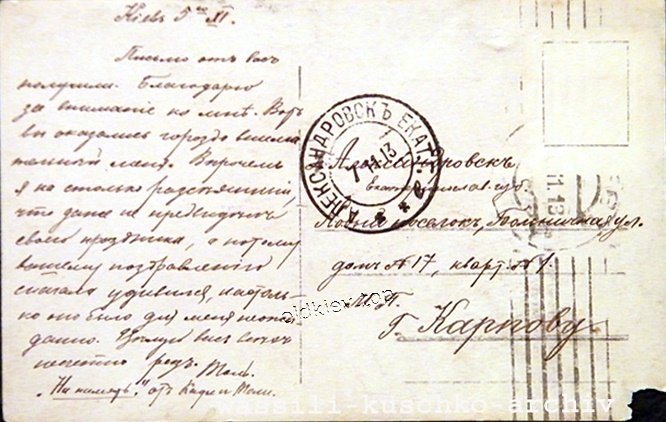 Кіевъ 5го XI.
Письмо отъ васъ
получили. Благодарю
за вниманіе ко мнѣ. Вотъ
вы оказались гораздо внима
тельнѣй меня. Впрочемъ
я на столько разсѣянный,
что даже не предвидѣлъ
своего праздника, а потому
вашему поздравленію
сначала удивился, настоль-
ко оно было для меня неожи
данно. Цѣлую васъ всѣхъ
отъ Кати и Толи.
АЛЕКСАНДРОВСКЪ ЕКАТ. Г.
7.11.13
Александровскъ
екатеринослав. губ.
Новый поселокъ, Больничная ул.
домъ №17, кварт. №1.
Г. Карпову.
11.13
oldkiev.top
wassili-kuschko-archiv